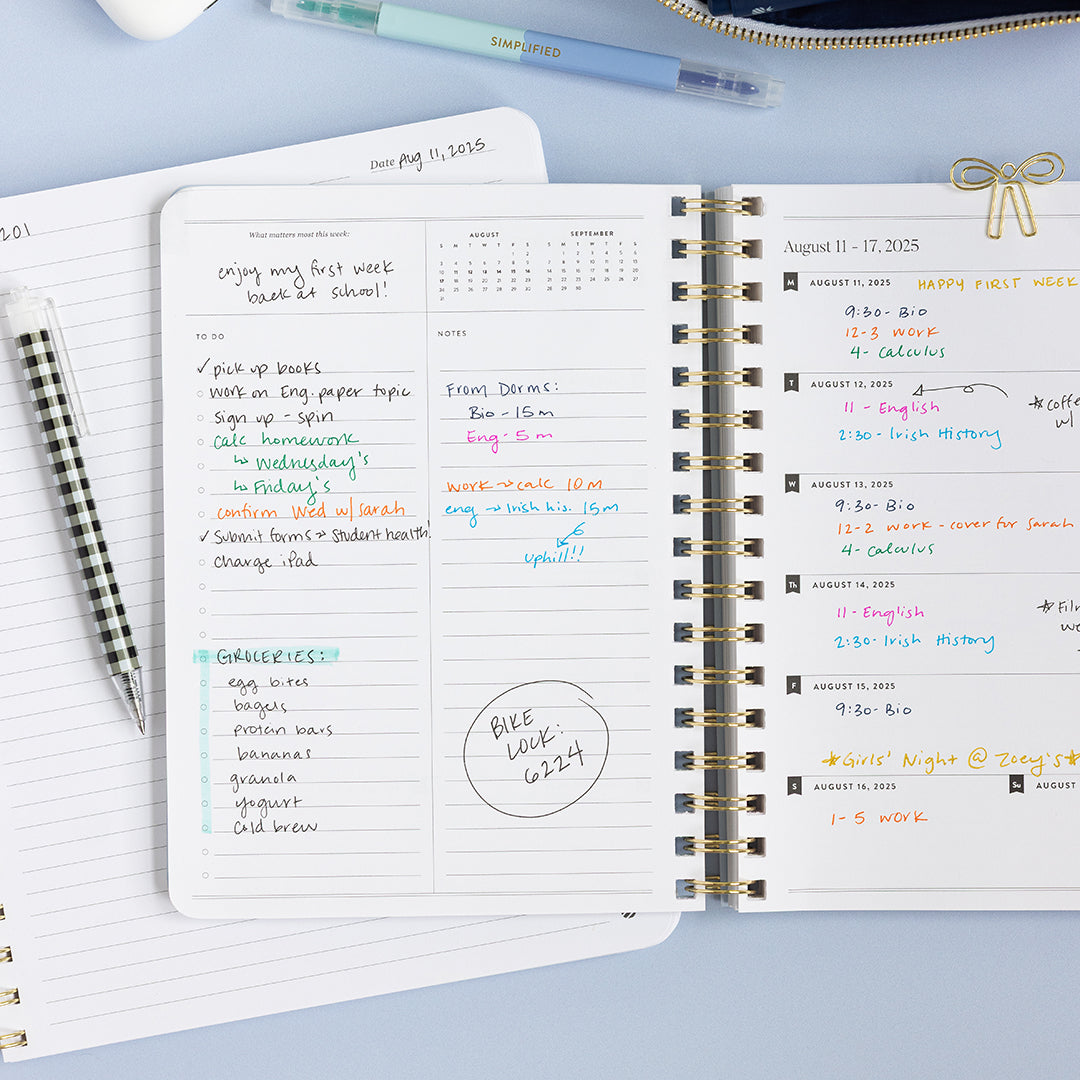 SIMPLIFIED
Date Aug 11, 2025
201
What matters most this week:
enjoy my first week
back at school!
AUGUST
S M T W T F S
1 2
3 4 5 6 7 8 9
10 11 12 13 14 15 16
17 18 19 20 21 22 23
24 25 26 27 28 29 30
31
SEPTEMBER
S M T W T F S
1 2 3 4 5 6
7 8 9 10 11 12 13
14 15 16 17 18 19 20
21 22 23 24 25 26 27
28 29 30
TO DO
✓ pick up books
work on Eng. paper topic
sign up - spin
calc homework
↳ Wednesday's
↳ Friday's
confirm Wed w/ Sarah
✓ Submit forms → Student health!
charge iPad
GROCERIES:
egg bites
bagels
protein bars
bananas
granola
yogurt
cold brew
NOTES
From Dorms:
Bio - 15 m
Eng - 5 m
work → calc 10 m
eng → Irish his. 15 m
uphill!!
BIKE
LOCK:
6224
August 11 - 17, 2025
M AUGUST 11, 2025 HAPPY FIRST WEEK
9:30 - Bio
12-3 work
4 - Calculus
T AUGUST 12, 2025
11 - English
2:30 - Irish History
☆ coffe
w/
W AUGUST 13, 2025
9:30 - Bio
12-2 work - cover for Sarah
4 - Calculus
Th AUGUST 14, 2025
11 - English
2:30 - Irish History
☆ Fil
we
F AUGUST 15, 2025
9:30 - Bio
☆Girls' Night @ Zoey's☆
S AUGUST 16, 2025
1-5 work
Su AUGUST